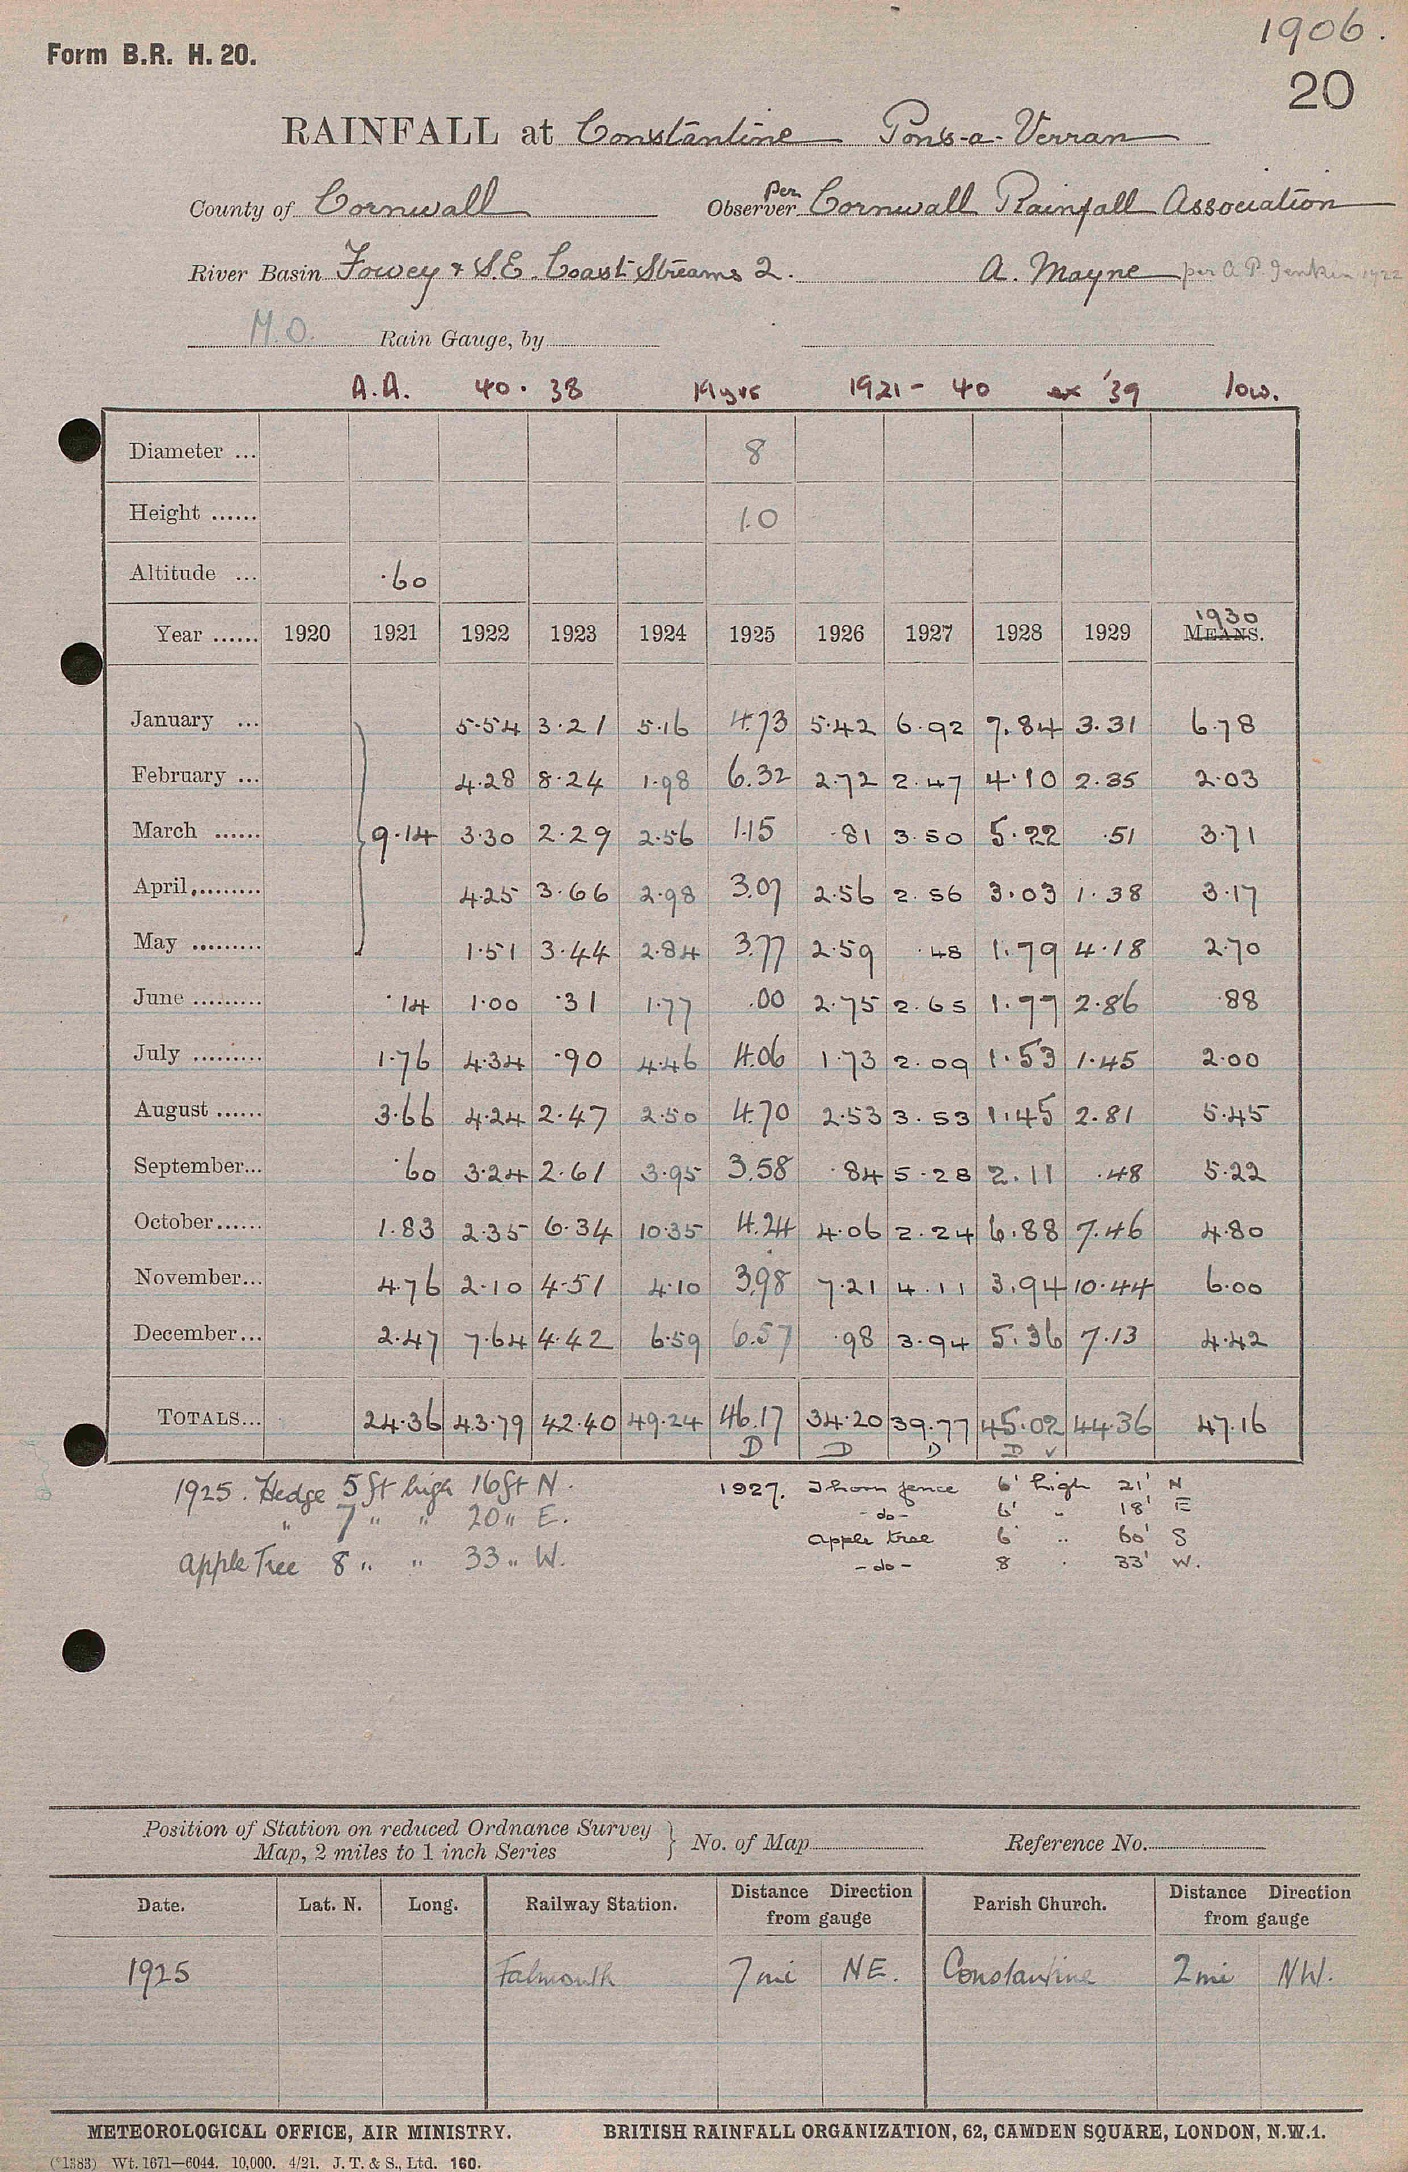 1906.
Form B.R. H. 20.
20
RAINFALL at Constantine Pons-a-Verran
County of Cornwall Observer per Cornwall Rainfall Association
River Basin Fowey & S.E. Coast Streams 2. A. Mayne per A.P. Jenkin 1922
M.O. Rain Gauge, by
A.A. 40.38 19 yrs 1921 - 40 ex '39 low.
Diameter ... 8
Height ...... 1.0
Altitude ... .60
1930
Year ...... 1920 1921 1922 1923 1924 1925 1926 1927 1928 1929 MEANS.
January ... 5.54 3.21 5.16 4.73 5.42 6.92 7.84 3.31 6.78
February ... 4.28 8.24 1.98 6.32 2.72 2.47 4.10 2.35 2.03
March ...... 9.14 3.30 2.29 2.56 1.15 .81 3.50 5.22 .51 3.71
April,......... 4.25 3.66 2.98 3.07 2.56 2.56 3.03 1.38 3.17
May ......... 1.51 3.44 2.84 3.77 2.59 .48 1.79 4.18 2.70
June ......... .14 1.00 .31 1.77 .00 2.75 2.65 1.77 2.86 .88
July ......... 1.76 4.34 .90 4.46 4.06 1.73 2.09 1.53 1.45 2.00
August ...... 3.66 4.24 2.47 2.50 4.70 2.53 3.53 1.45 2.81 5.45
September... .60 3.24 2.61 3.95 3.58 .84 5.28 2.11 .48 5.22
October...... 1.83 2.35 6.34 10.35 4.24 4.06 2.24 6.88 7.46 4.80
November... 4.76 2.10 4.51 4.10 3.98 7.21 4.11 3.94 10.44 6.00
December... 2.47 7.64 4.42 6.59 6.57 .98 3.94 5.36 7.13 4.42
TOTALS... 24.36 43.79 42.40 49.24 46.17 34.20 39.77 45.02 44.36 47.16
D D D D v
1925. Hedge 5 ft high 16 ft N.
" 7 " " 20 " E.
apple Tree 8 " " 33 " W.
1927. Thorn fence 6' high 21' N
-do- 6' " 18' E
apple tree 6' " 60' S
-do- 8 " 33' W.
Position of Station on reduced Ordnance Survey
Map, 2 miles to 1 inch Series } No. of Map Reference No.
Date. Lat. N. Long. Railway Station. Distance Direction from gauge Parish Church. Distance Direction from gauge
1925 Falmouth 7 mi NE. Constantine 2 mi NW.
METEOROLOGICAL OFFICE, AIR MINISTRY. BRITISH RAINFALL ORGANIZATION, 62, CAMDEN SQUARE, LONDON, N.W.1.
(*1383) Wt. 1671—6044. 10,000. 4/21. J. T. & S., Ltd. 160.